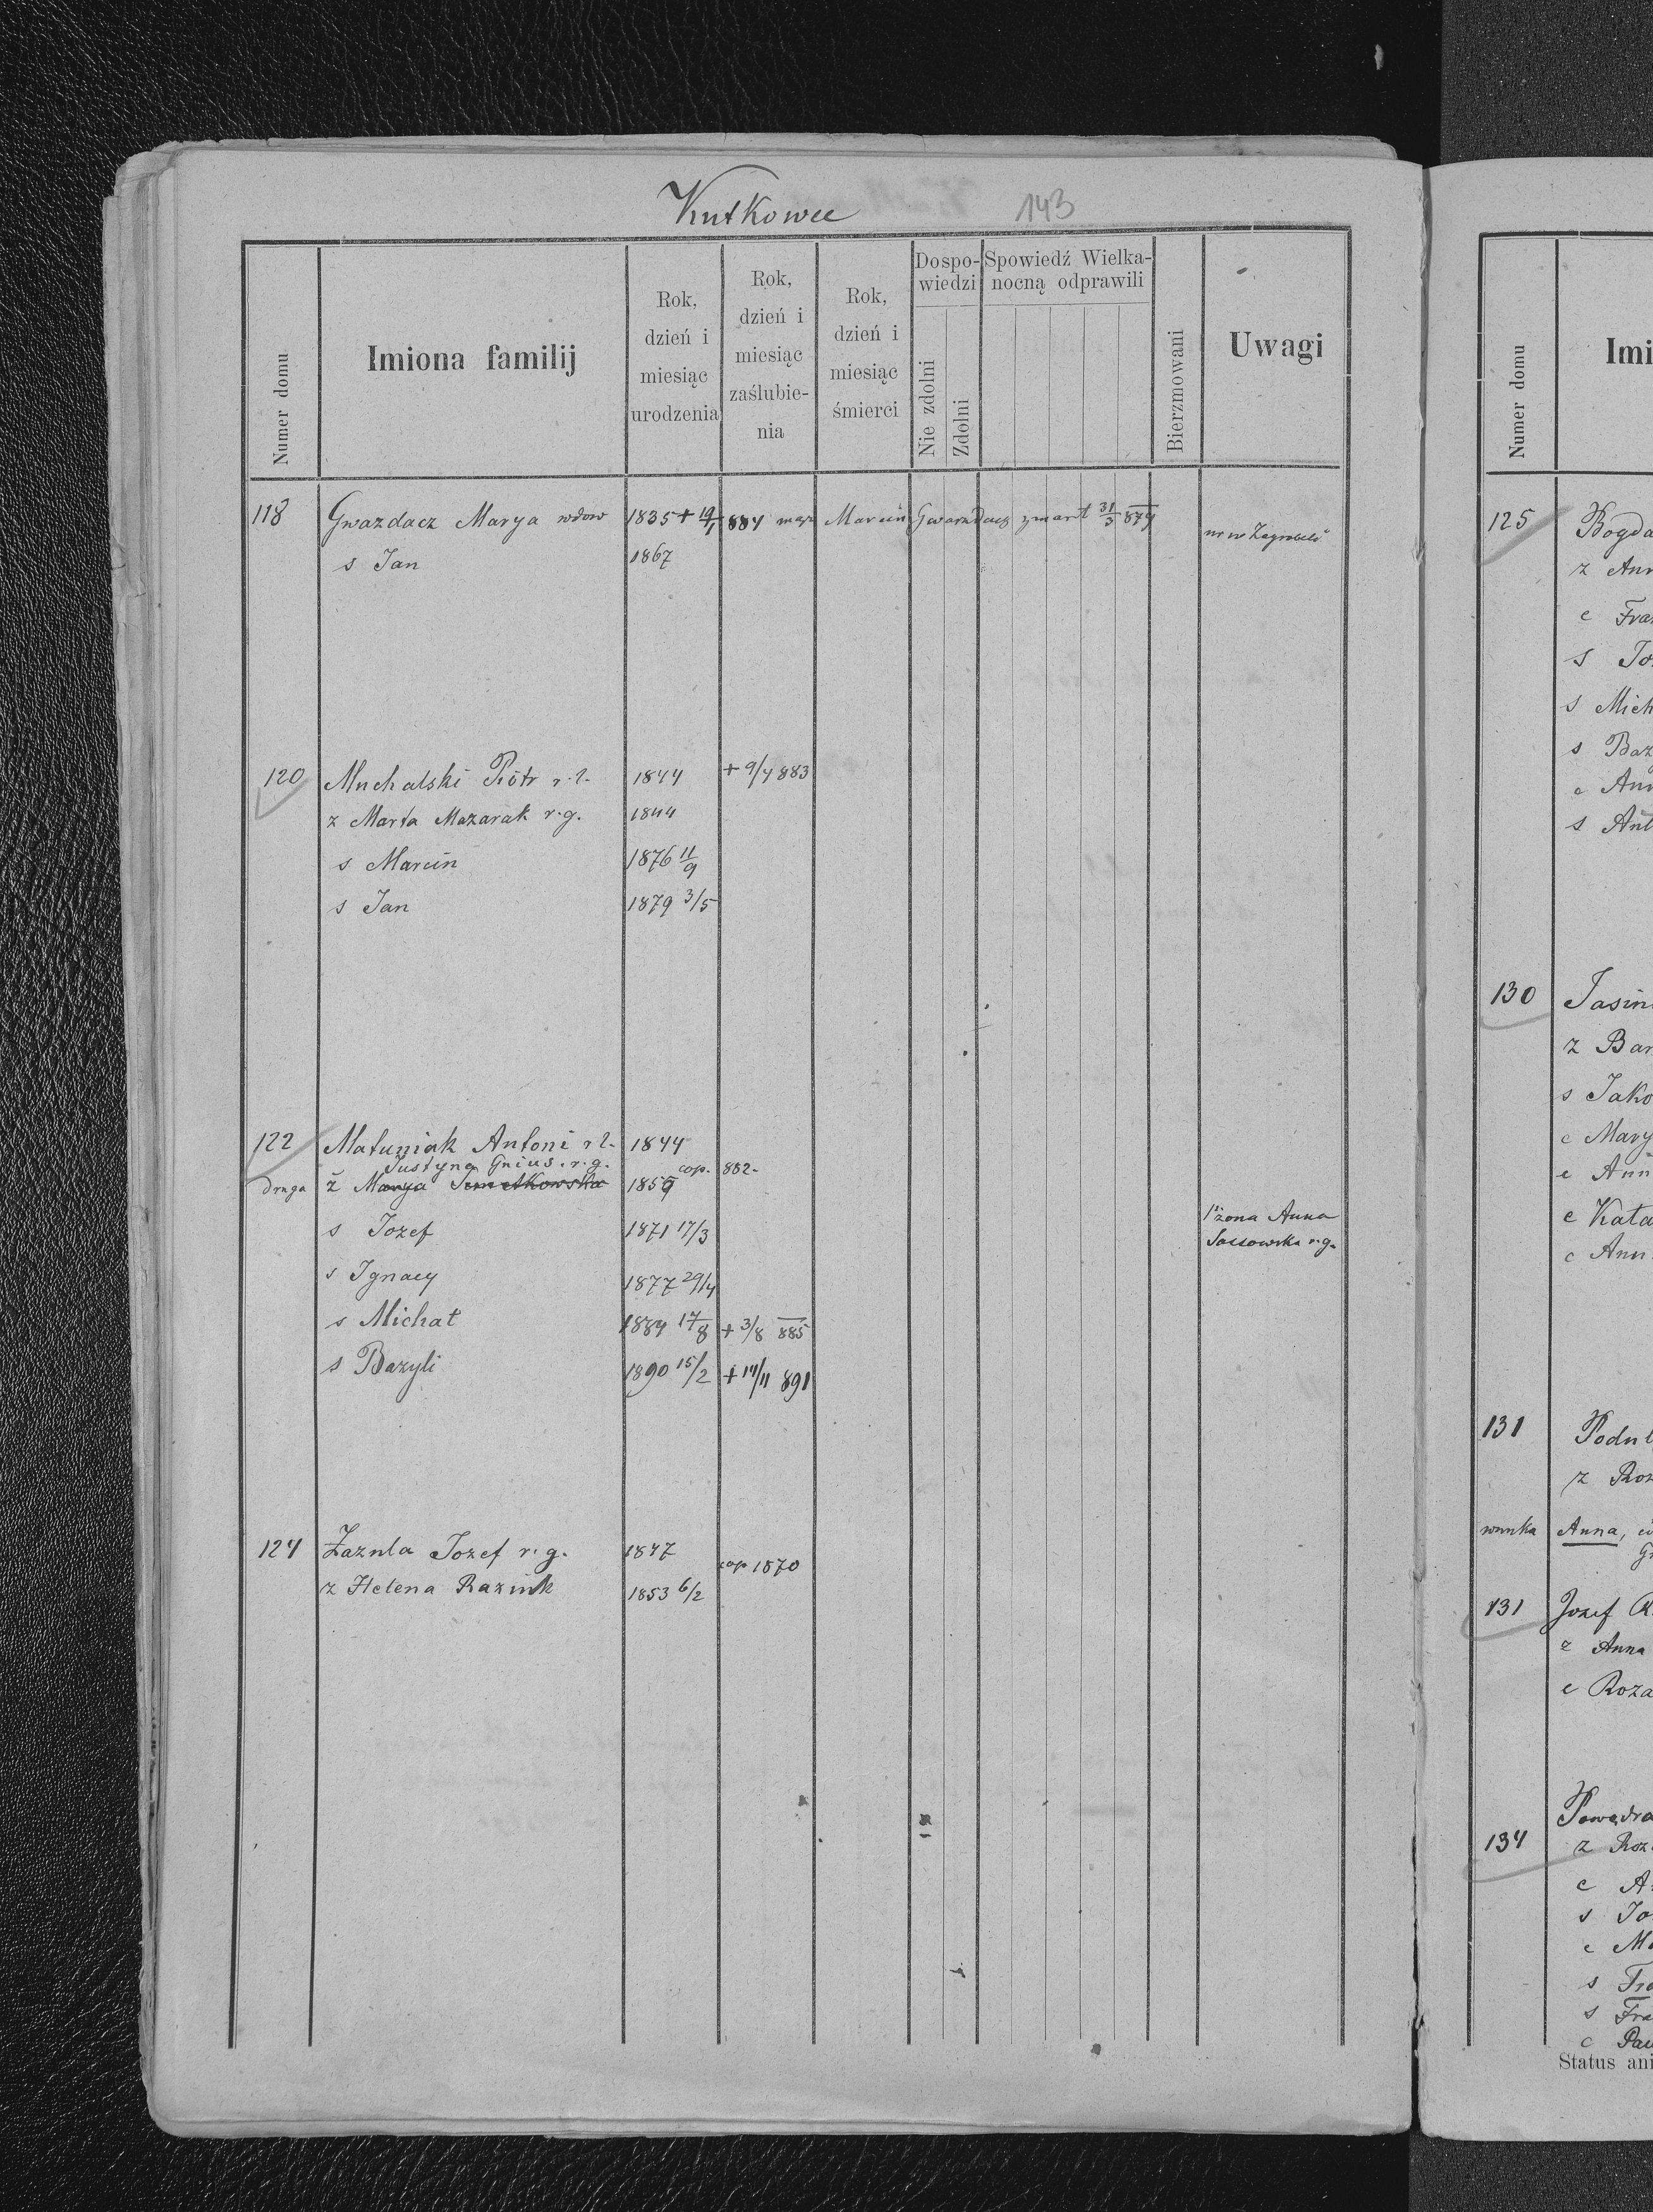 Kutkowce 143
Numer domu
Imiona familij
Rok, dzień i miesiąc urodzenia
Rok, dzień i miesiąc zaślubienia
Rok, dzień i miesiąc śmierci
Dospowiedzi
Nie zdolni
Zdolni
Spowiedź Wielkanocną odprawili
Bierzmowani
Uwagi
118 Gwazdacz Marya wdow 1835 + 19/1 884 mąż Marcin Gwarzdacz zmarł 31/3 874
s Jan 1867
120 Muchalski Piotr r. ł. 1844 + 9/4 883
z Marta Mazarak r. g. 1844
s Marcin 1876 11/9
s Jan 1879 3/5
122 Matuniak Antoni r ł. 1844
Justyna Gnius r. g. cop. 882
druga ż Marya 1859
s Jozef 1871 17/3
1a żona Anna
r. g.
s Ignacy 1877 29/4
s Michał 1884 17/8 + 3/8 885
s Bazyli 1890 15/2 + 14/11 891
124 Zazula Jozef r. g. 1847
cop 1870
z Helena Raziuk 1853 6/2
Numer domu
Imi
125 Bogda
z Ann
c Fran
s Jo
s Mich
s Baz
c Ann
s Ant
130 Jasin
z Bar
s Jako
c Mary
c Ann
c Kata
c Ann
131 Podul
z Roz
wnuka Anna,
131 Jozef
z Anna
c Roza
134
z Roz
c A
s Jo
c Ma
s Fra
s Fra
c Pau
Status ani